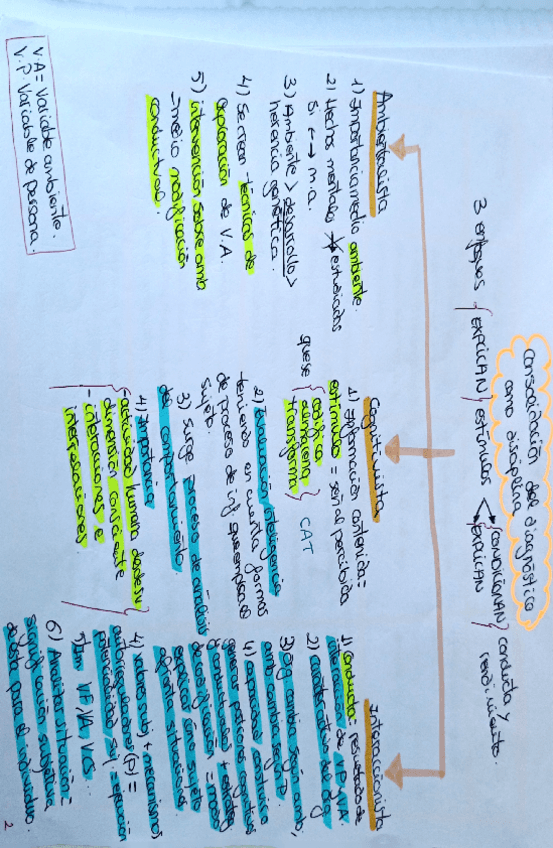 Consolidación del diagnóstico
como disciplina
3 enfoques
EXPLICAN
estímulos
CONDICIONAN
EXPLICAN
conducta y
rendimiento.
Ambientalista
1) Importancia medio ambiente.
2) Hechos mentales estudiados
Si ↔ m.a.
3) Ambiente > desarrollo >
herencia genética.
4) Se crean técnicas de
exploración de V.A.
5) intervención sobre amb
medio modificación
conductual.
V.A = Variable ambiente.
V.P. Variable de persona.
Cognitivista
1) Información contenida =
estímulos = señal percibida
que se
codifica
almacena
transforma
CAT
2) Evaluación inteligencia
teniendo en cuenta formas
de proceso de inf. que emplea el
sujeto.
3) Surge proceso de análisis
del comportamiento.
4) Importancia
actividad humana desde su
dimensión consciente
- interacciones e
interrelaciones
Interaccionista
1) Conducta: resultado de
interacción de VP y VA.
2) Características del org
3) Org cambia según amb,
amb cambia según P.
4) capacidad constructo
generar patrones cognitivos
y conductuales + estrateg
de codificación = modo
explicar cómo sujeto
afronta situaciones
4) valores subj + mecanismos
autorreguladores (P) =
potencialidad suj. = ejecución
5) Im VP, VA, VCS.
6) Analizar situación =
significación subjetiva
de esta para el individuo.
2